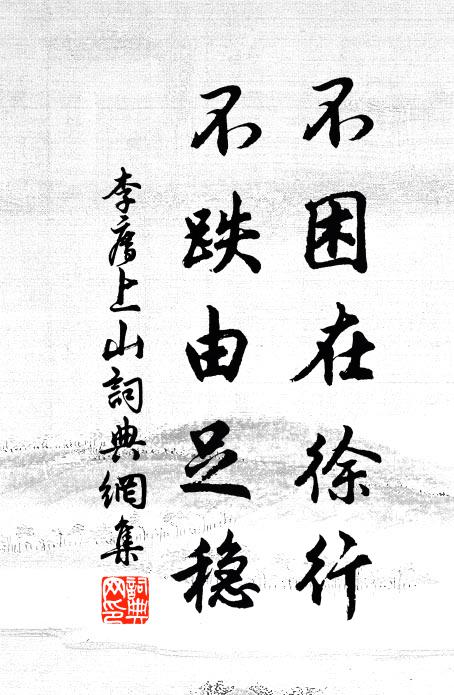 不困在徐行
不跌由足稳
李廌上山詞典網集
詞典網印